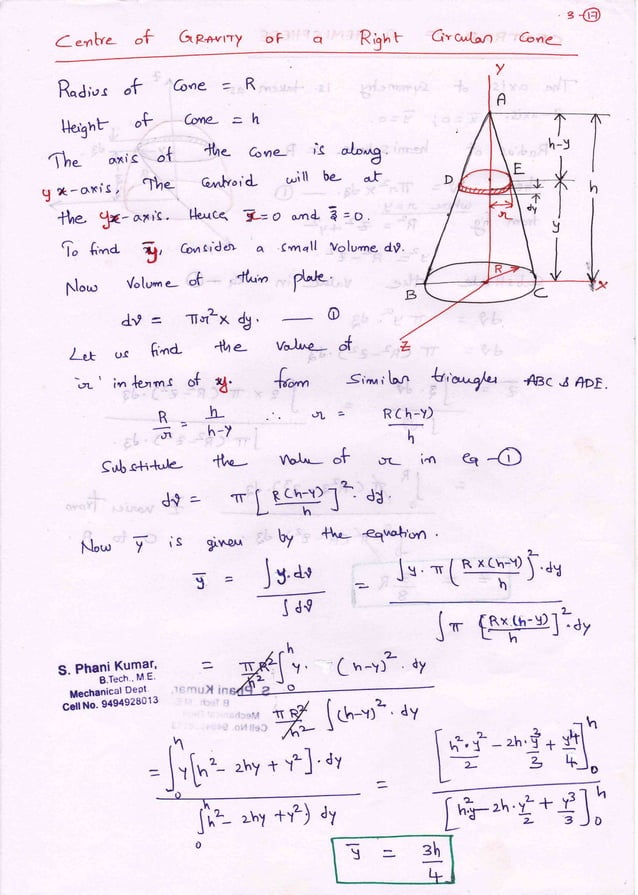 3-17
Centre of GRAVITY of a Right Circular Cone
Radius of Cone = R
Height of Cone = h
The axis of the cone is along
y x-axis. The centroid will be at
the yx-axis. Hence x̄=0 and z̄=0.
To find ȳ, consider a small volume dv.
Now Volume of thin plate.
dv = πr² x dy. — ①
Let us find the value of
'r' in terms of y. from similar triangles ABC & ADE.
R/r = h/h-y ∴ r = R(h-y)/h
Substitute the value of r in eq-①
dv = π [R(h-y)/h]². dy.
Now ȳ is given by the equation.
ȳ = ∫y.dv / ∫dv = ∫y. π (Rx(h-y)/h)². dy / ∫π [Rx(h-y)/h]². dy
= πR²/h² ∫₀ʰ y. (h-y)². dy / πR²/h² ∫(h-y)². dy
= ∫₀ʰ y[h²- 2hy + y²]. dy / ∫₀ʰ(h²- 2hy + y²) dy = [h².y²/2 - 2h.y³/3 + y⁴/4]₀ʰ / [h².y - 2h.y²/2 + y³/3]₀ʰ
ȳ = 3h/4
S. Phani Kumar,
B.Tech., M.E.
Mechanical Dept.
Cell No. 9494928013
Y
A
h-y
D
E
h
dy
r
y
R
B
C
X
Z